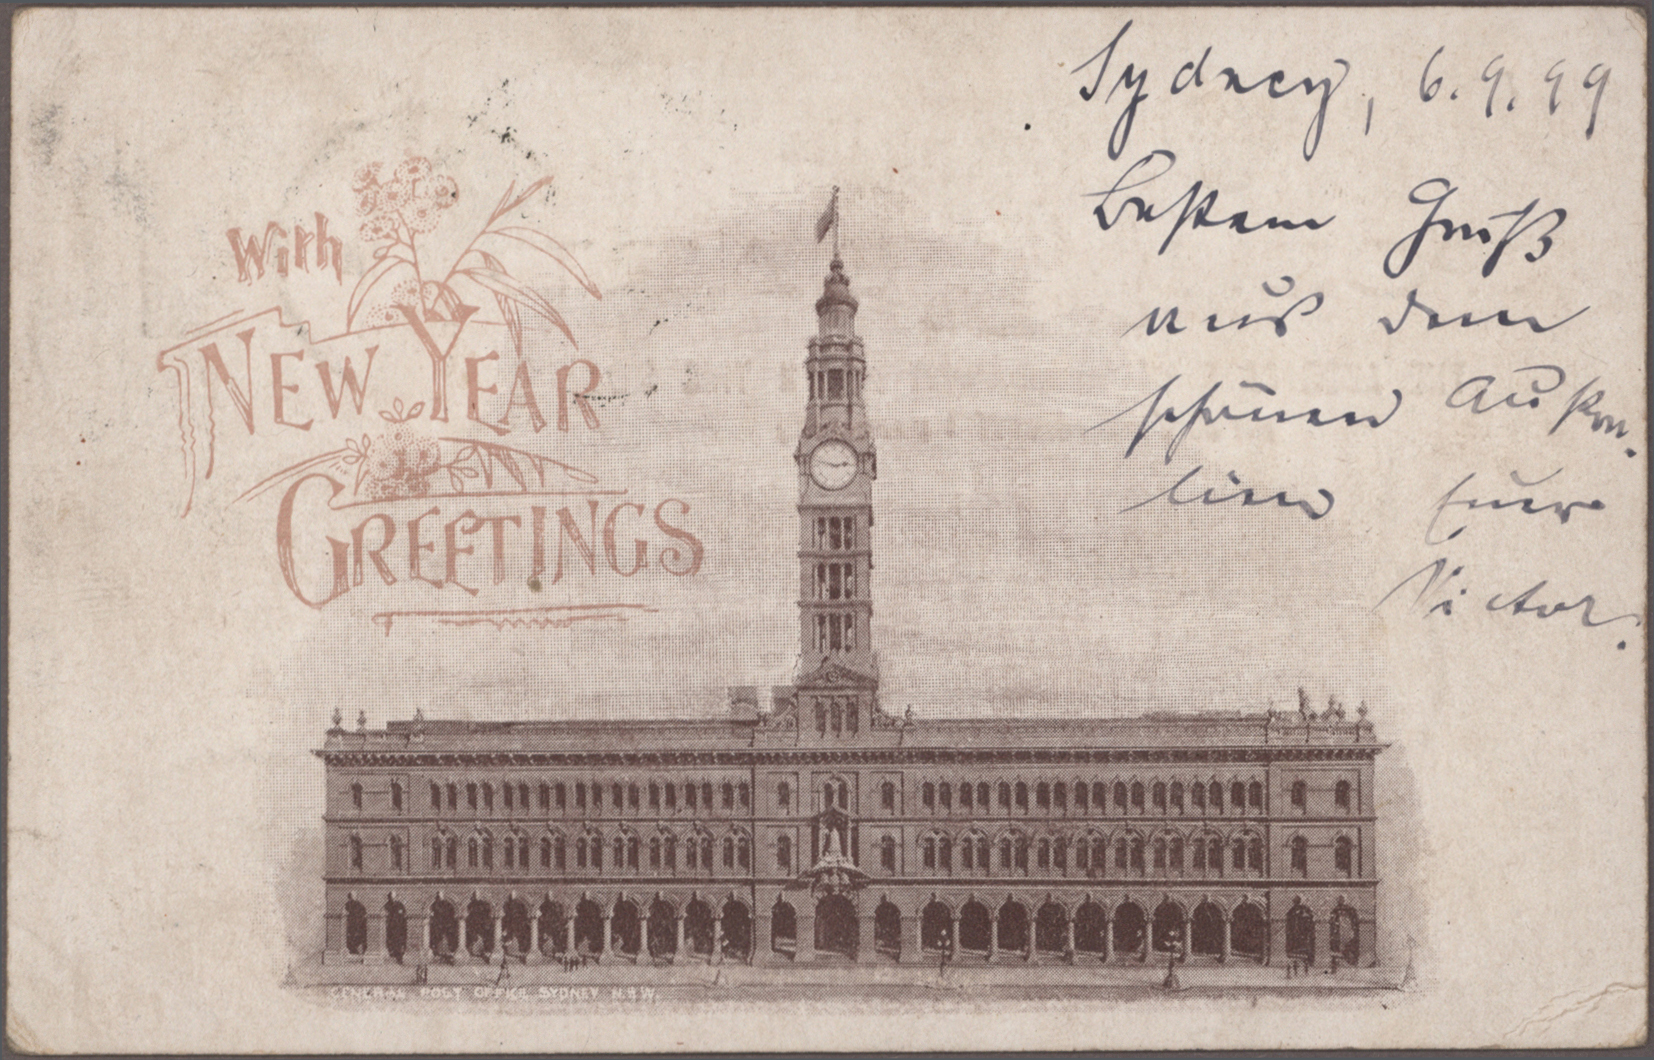 With
NEW YEAR
GREETINGS
Sydney, 6.9.99
Besten Gruß
aus dem
schönen Austra-
lien Euer
Victor.
GENERAL POST OFFICE SYDNEY N.S.W.